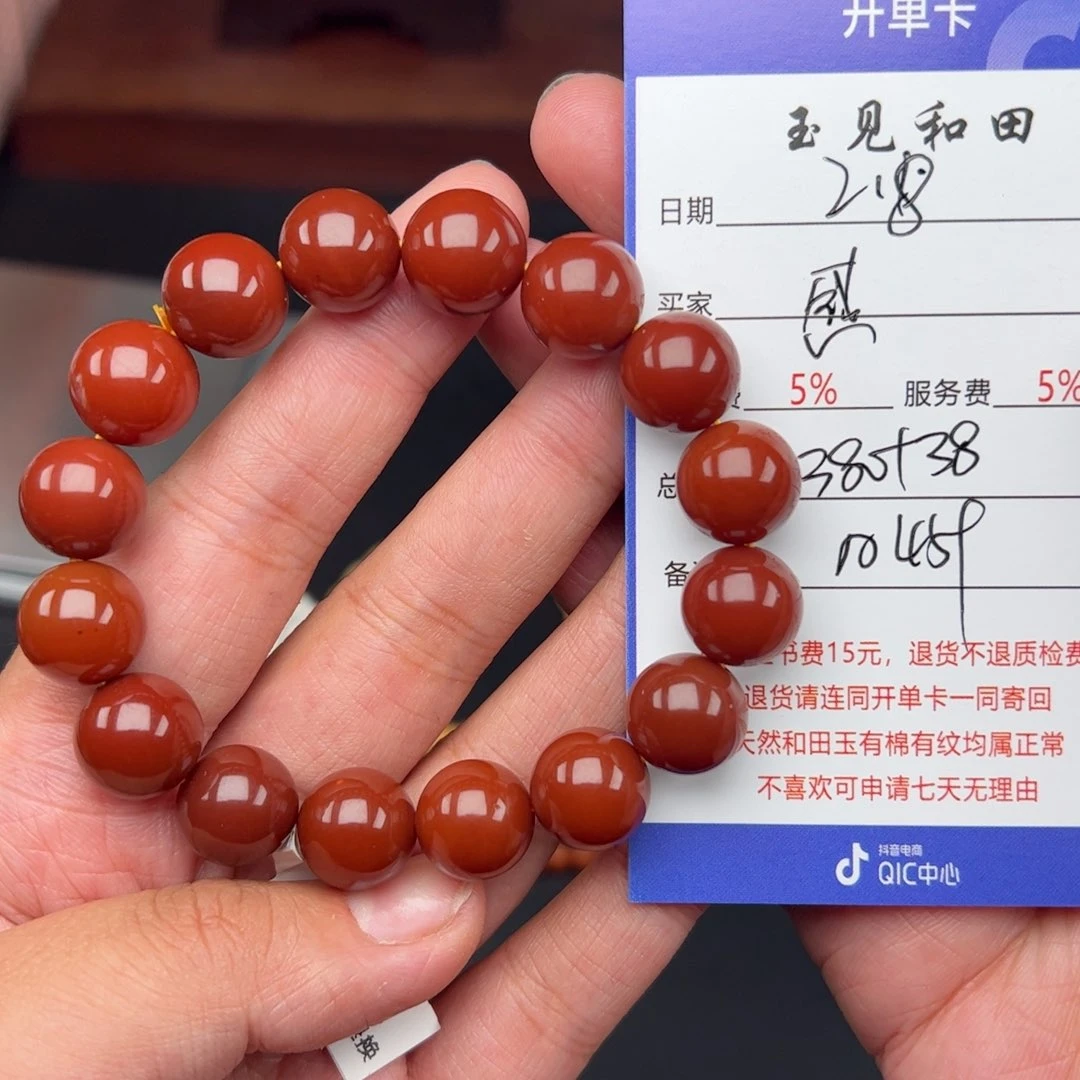 开单卡
玉见和田
日期 2.18
买家
5% 服务费 5%
总 380+38
备
书费15元，退货不退质检费
退货请连同开单卡一同寄回
天然和田玉有棉有纹均属正常
不喜欢可申请七天无理由
抖音电商
QIC中心